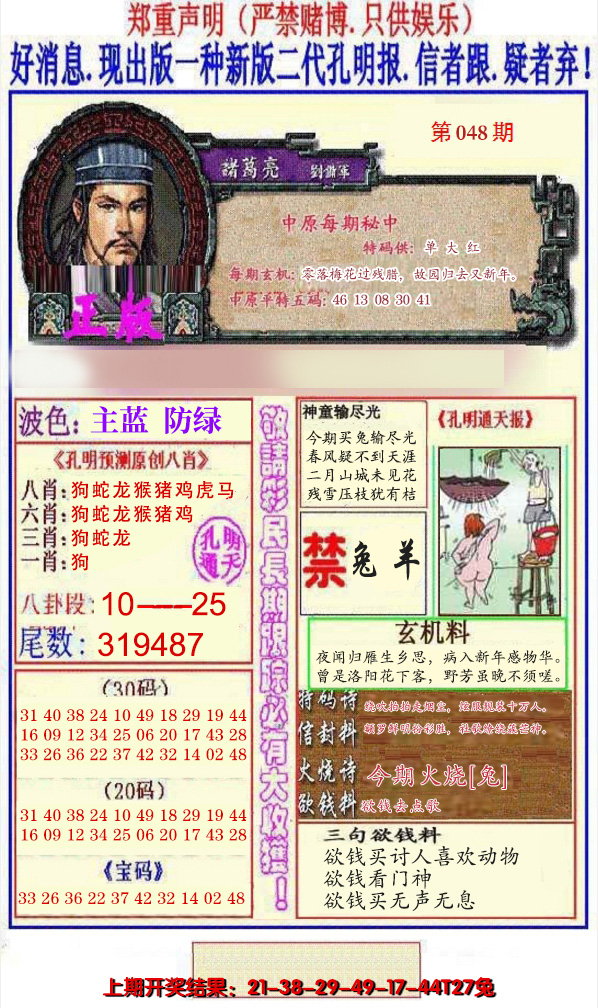 郑重声明（严禁赌博.只供娱乐）
好消息.现出版一种新版二代孔明报.信者跟.疑者弃!
第048期
諸葛亮 劉備軍
中原每期秘中
特码供：单大红
每期玄机：零落梅花过残腊，故园归去又新年。
中原平特五码：46 13 08 30 41
正版
波色：主蓝 防绿
《孔明预测原创八肖》
八肖：狗蛇龙猴猪鸡虎马
六肖：狗蛇龙猴猪鸡
三肖：狗蛇龙
一肖：狗
孔明通天
八卦段：10——25
尾数：319487
（30码）
31 40 38 24 10 49 18 29 19 44
16 09 12 34 25 06 20 17 43 28
33 26 36 22 37 42 32 14 02 48
（20码）
31 40 38 24 10 49 18 29 19 44
16 09 12 34 25 06 20 17 43 28
《宝码》
33 26 36 22 37 42 32 14 02 48
敬請彩民長期跟踪必有大收獲！
神童输尽光
今期买兔输尽光
春风疑不到天涯
二月山城未见花
残雪压枝犹有桔
《孔明通天报》
禁 兔羊
玄机料
夜闻归雁生乡思，病入新年感物华。
曾是洛阳花下客，野芳虽晚不须嗟。
特码诗
信封料
火烧诗 今期火烧[兔]
欲钱料 欲钱去点歌
三句欲钱料
欲钱买讨人喜欢动物
欲钱看门神
欲钱买无声无息
上期开奖结果：21-38-29-49-17-44T27兔